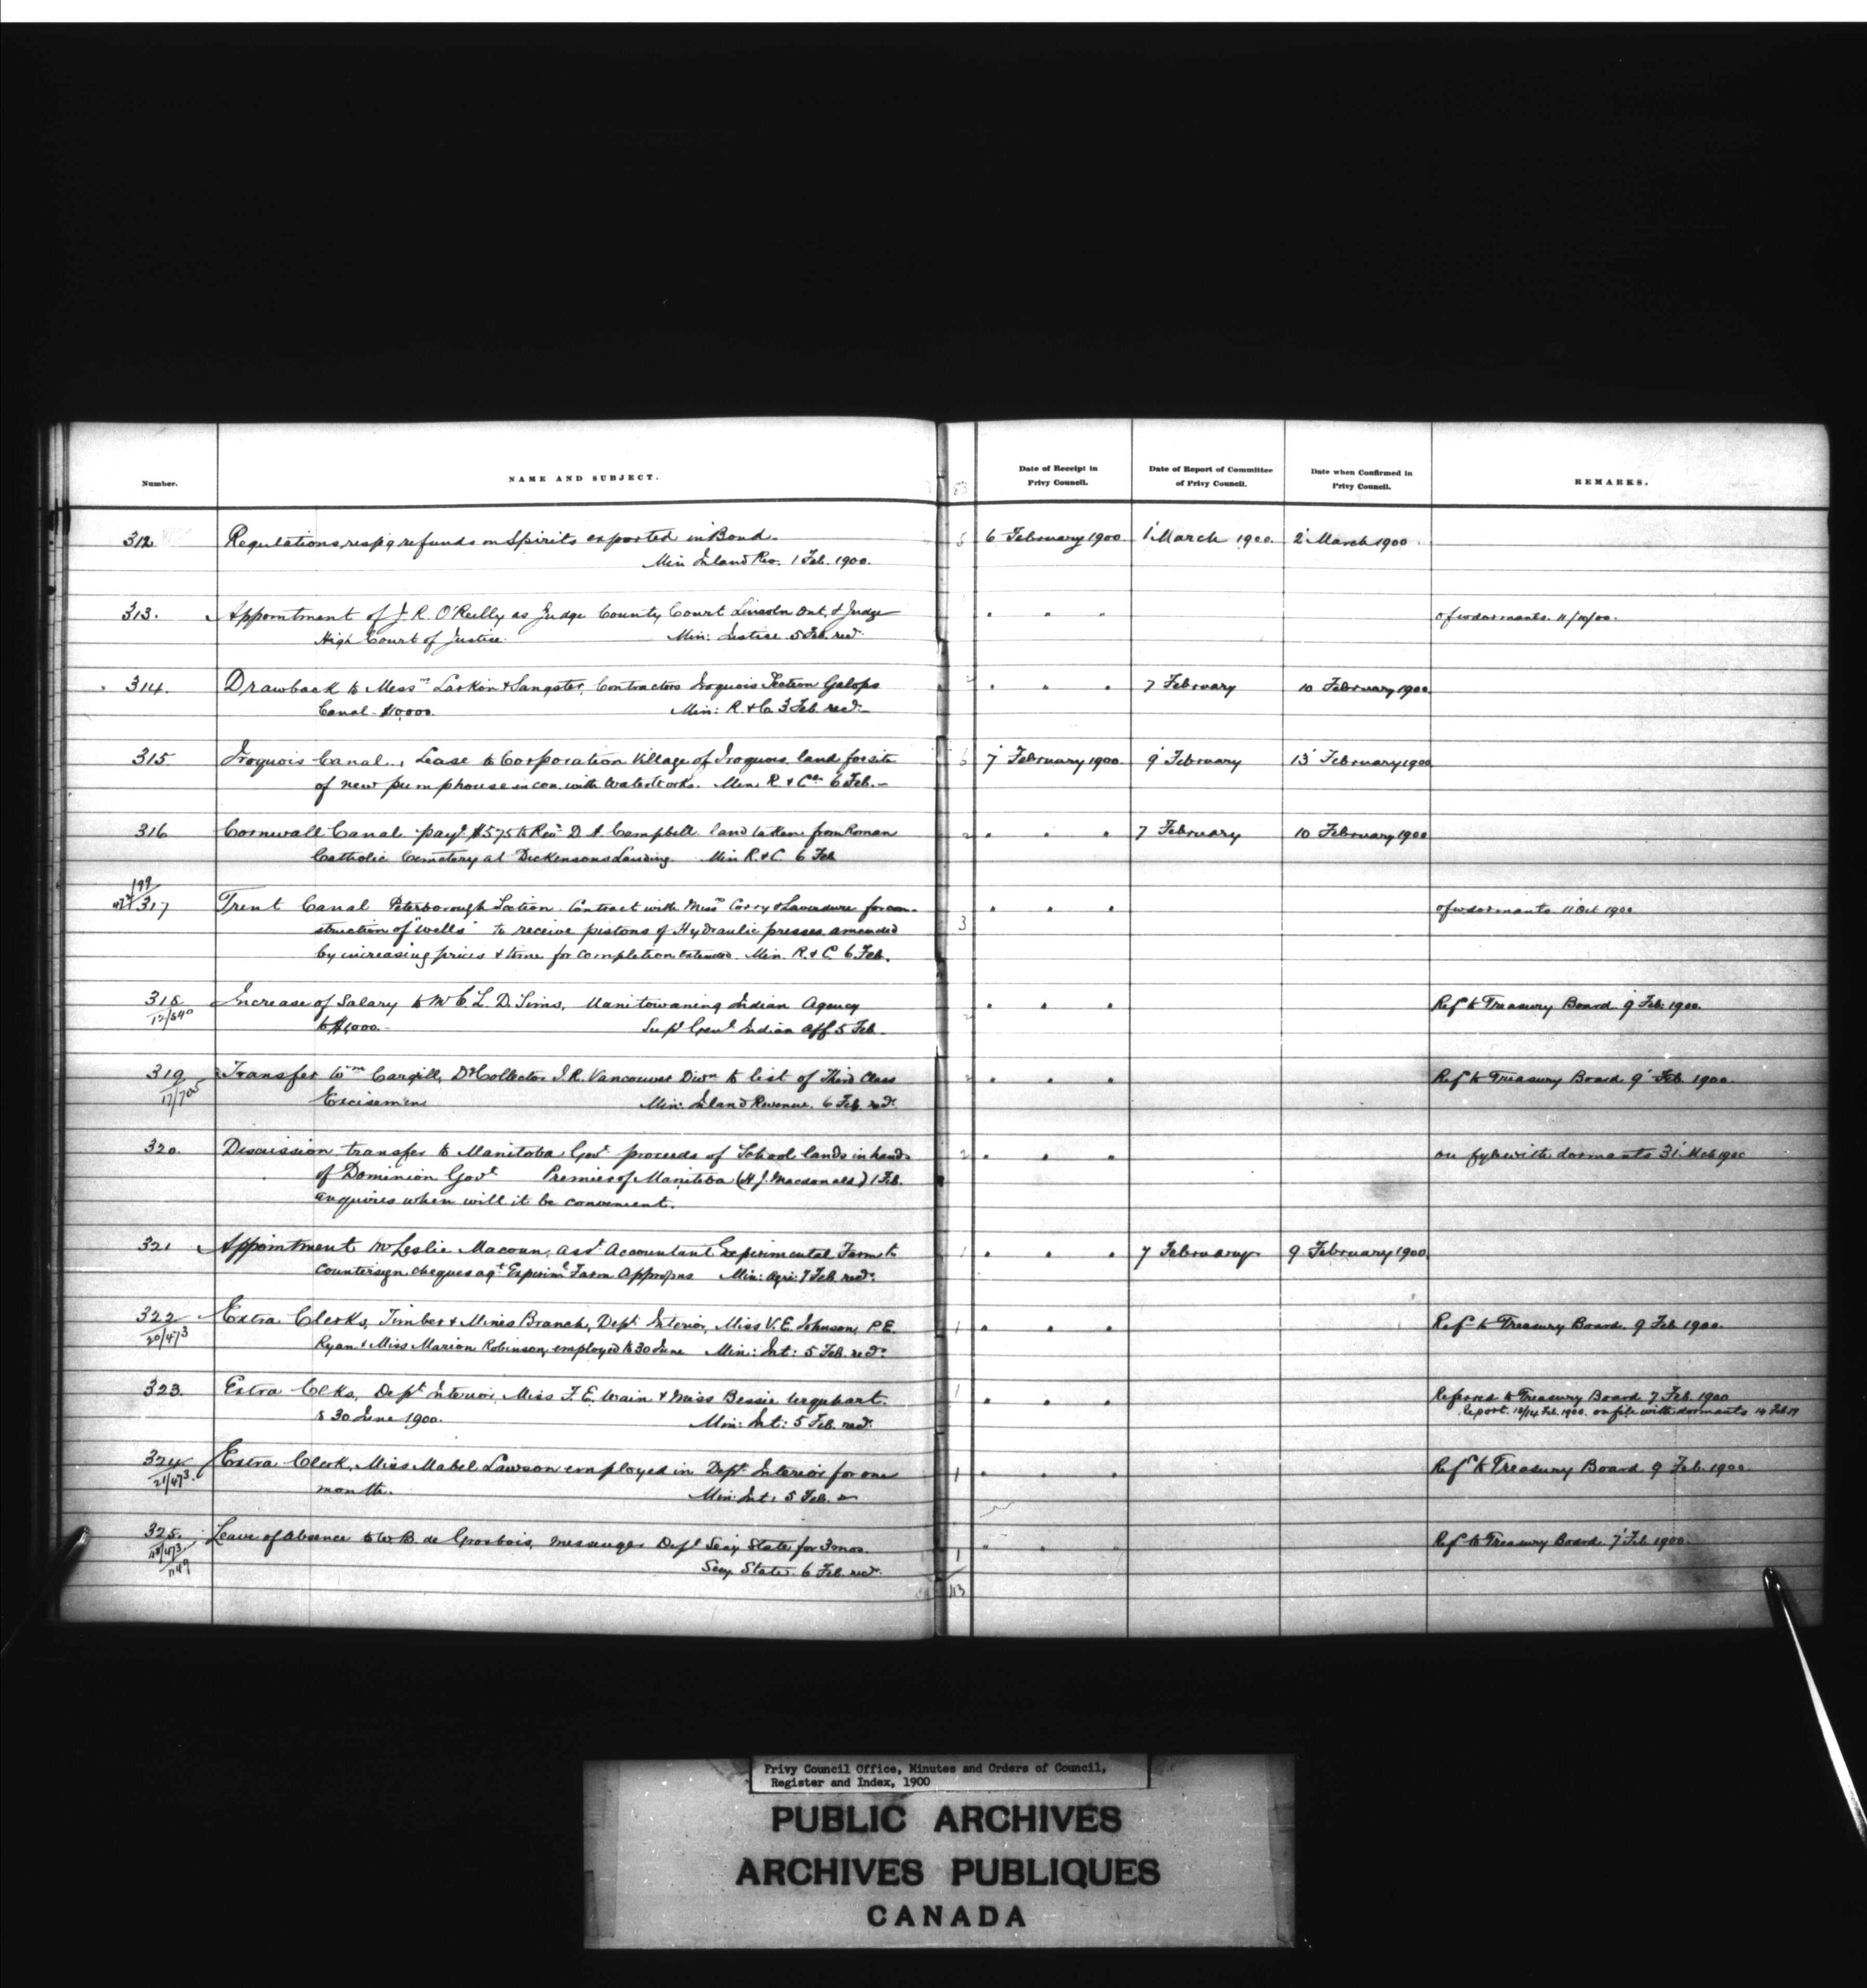 Number.
NAME AND SUBJECT.
Date of Receipt in Privy Council.
Date of Report of Committee of Privy Council.
Date when Confirmed in Privy Council.
REMARKS.
312 Regulations resp'g refunds on Spirits exported in Bond. 6 February 1900. 1 March 1900. 2 March 1900
Min Inland Rev. 1 Feb. 1900.
313. Appointment of J. R. O'Reilly as Judge County Court Lincoln Ont, & Judge " " " of w dormants. 11/10/00.
High Court of Justice. Min: Justice. 5 Feb. recd.
314. Drawback to Messrs Larkin & Sangster, Contractors Iroquois Section Galops " " " 7 February 10 February 1900.
Canal - $10,000. Min: R. & Ca 3 Feb. recd.
315 Iroquois Canal., Lease to Corporation Village of Iroquois, land for site 7 February 1900. 9 February 13 February 1900
of new pumphouse in con. with Waterworks. Min. R. & Cls 6 Feb.
316 Cornwall Canal payt $575 to Revd D. A. Campbell land taken from Roman " " " 7 February 10 February 1900
Catholic Cemetery at Dickensons Landing. Min R. & C 6 Feb
199
317 Trent Canal Peterborough Section. Contract with Messrs Corry & Laverdure for con- " " " of w dormants 11 Oct 1900
struction of "wells" to receive pistons of Hydraulic presses, amended
by increasing prices & time for completion extended. Min. R. & C. 6 Feb.
318 Increase of Salary to Mr C. L. D. Sims, Manitowaning Indian Agency " " " Refd to Treasury Board 9 Feb. 1900.
12/540 to $1,000. Supt Genl Indian Aff. 5 Feb.
319 Transfer Wm Cargill, Dy Collector I.R. Vancouver Divn to list of Third Class " " " Refd to Treasury Board 9 Feb 1900.
17/705 Excisemen Min: Inland Revenue. 6 Feb. recd.
320. Discussion transfer to Manitoba Govt proceeds of School lands in hands " " " on fyle with dormants 31 Mch 1900
of Dominion Govt Premier of Manitoba (H. J. Macdonald) 1 Feb.
enquires when will it be convenient.
321 Appointment Mr Leslie Macoun, Asst Accountant Experimental Farm to " " " 7 February 9 February 1900
countersign cheques agt Experiml Farm Appropns Min: Agri: 7 Feb. recd.
322 Extra Clerks, Timber & Mines Branch, Dept Interior, Miss V. E. Johnson, P. E. " " " Refd to Treasury Board. 9 Feb 1900.
20/473 Ryan & Miss Marion Robinson, employed to 30 June Min: Int: 5 Feb. recd.
323. Extra Clks, Dept Interior Miss F. E. Wain & Miss Bessie Urquhart. " " " Referred to Treasury Board 7 Feb. 1900
to 30 June 1900. Min: Int: 5 Feb. recd. Report. 12/14 Feb. 1900. on file with dormants 14 Feb
324 Extra Clerk, Miss Mabel Lawson employed in Dept Interior for one " " " Refd to Treasury Board 9 Feb. 1900
21/473. month. Min: Int: 5 Feb.
325. Leave of Absence to W. B. de Grosbois, messenger Dept Secy State for 3 mos. " " " Refd to Treasury Board. 7 Feb 1900.
Secy State. 6 Feb. recd.
Privy Council Office, Minutes and Orders of Council,
Register and Index, 1900
PUBLIC ARCHIVES
ARCHIVES PUBLIQUES
CANADA